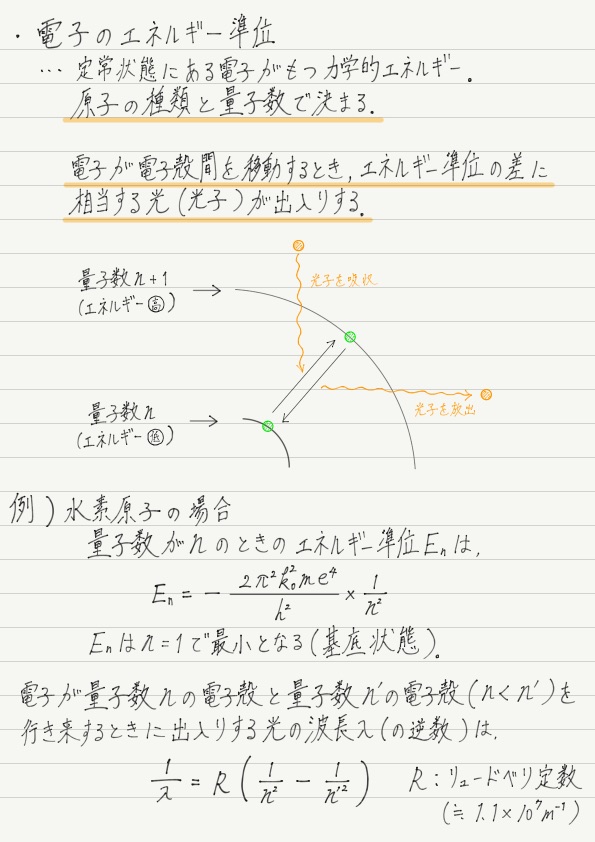 ・電子のエネルギー準位
… 定常状態にある電子がもつ力学的エネルギー。
原子の種類と量子数で決まる。
電子が電子殻間を移動するとき,エネルギー準位の差に
相当する光(光子)が出入りする。
光子を吸収
量子数n+1 →
(エネルギー高)
光子を放出
量子数n →
(エネルギー低)
例)水素原子の場合
量子数がnのときのエネルギー準位Enは,
En = - 2π²k₀²me⁴/h² × 1/n²
Enはn=1で最小となる(基底状態)。
電子が量子数nの電子殻と量子数n'の電子殻(n<n')を
行き来するときに出入りする光の波長λ(の逆数)は,
1/λ = R(1/n² - 1/n'²) R:リュードベリ定数
(≒ 1.1×10⁷m⁻¹)